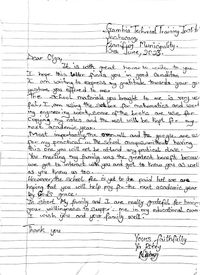 Technical Training Instit
Municipality.
June, 2023.
Dear Olga
It is with great honor to write to you.
I hope this letter finds you in good condition.
I am writing to express my gratitude towards your
you offered to me.
The school materials you brought to me is very
I am using the for mathematics and
engineering work, some of the books are use for
copying my notes and the rest will be kept for
next academic year.
Most importantly the overall and the google are
for my practical in the school compound without having
this one you will not be allowed any practical class.
You meeting my family was the greatest benefit because
we got to interact with you and got to know you as well
as you know us too.
However, the school fee is yet to be paid but we are
hoping that you will help me for the next academic year
by God's grace.
In short My family and I are really grateful for
your willingness to support me in my educational
I wish you and your family well.
Thank you
Yours faithfully